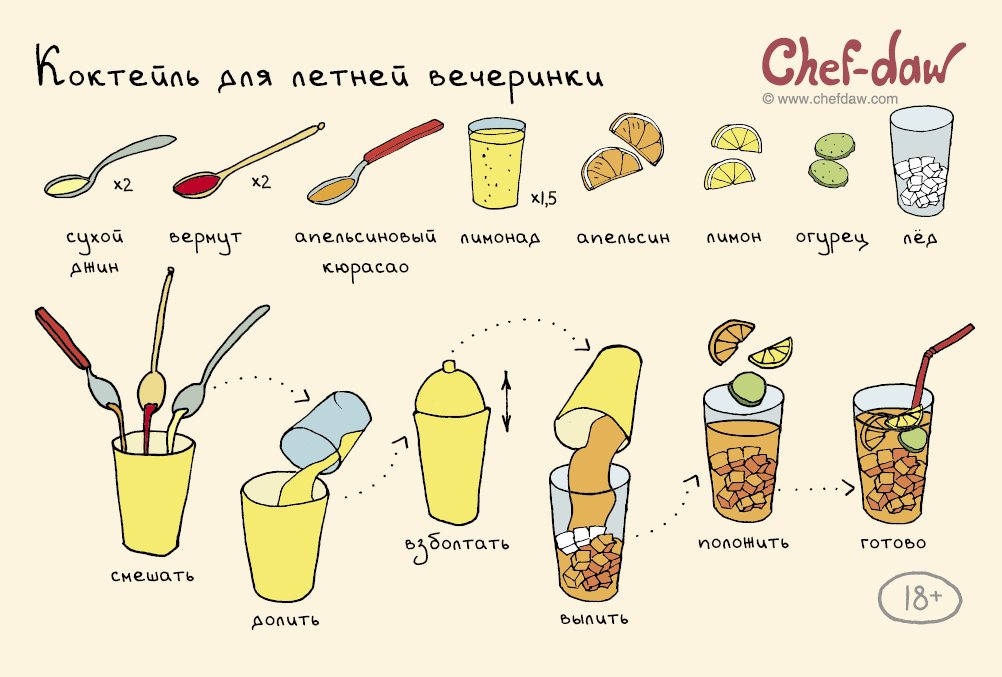 Коктейль для летней вечеринки
Chef-daw
© www.chefdaw.com
x2
x2
x1,5
сухой джин
вермут
апельсиновый кюрасао
лимонад
апельсин
лимон
огурец
лёд
смешать
долить
взболтать
вылить
положить
готово
18+